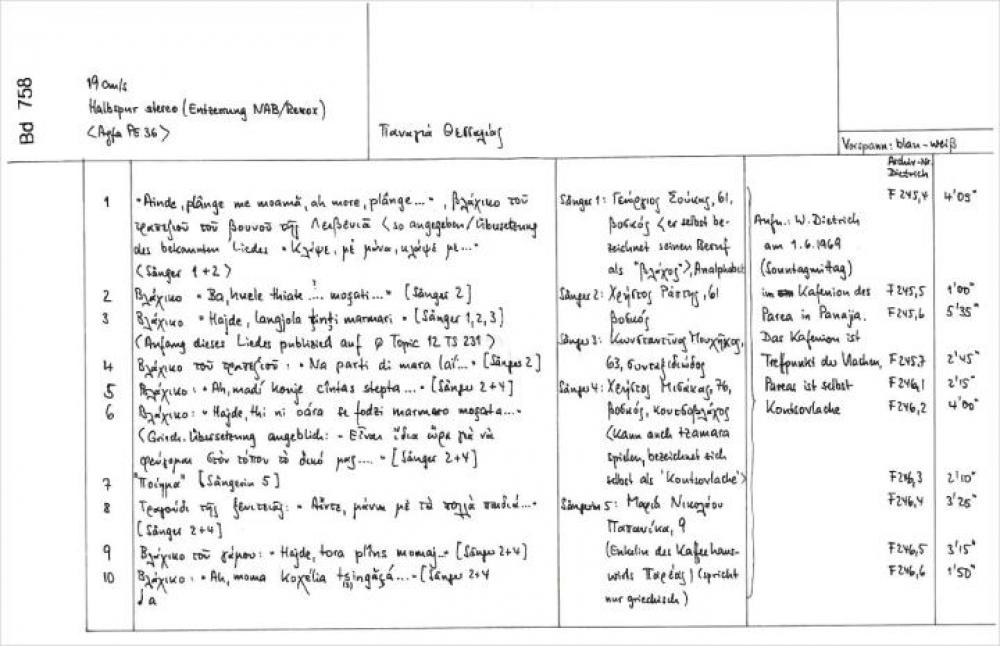 Bd 758
19 cm/s
Halbspur stereo (Entzerrung NAB/Revox)
<Agfa PE 36>
Παναγιά Θεσσαλίας
Vorspann: blau-weiß
Archiv-Nr. Dietrich
1 "Ainde, plânge me moamă, ah more, plânge..." , βλάχικο τοῦ
τραπεζιοῦ τοῦ βουνοῦ τῆς <so angegeben/Übersetzung
des bekannten Liedes "Κλάψε, μὲ μάνα, κλάψε με..."
(Sänger 1+2)
2 Βλάχικο "Ba, huele thiate ... moşati..." [Sänger 2]
3 Βλάχικο "Hajde, langjola ţinţi marmari" [Sänger 1, 2, 3]
(Anfang dieses Liedes publiziert auf Topic 12 TS 231)
4 Βλάχικο τοῦ τραπεζιοῦ: "Na parti di mara lai..." [Sänger 2]
5 Βλάχικο: "Ah, madi konje cintas stepta..." [Sänger 2+4]
6 Βλάχικο: "Hajde, thi ni oára se fodzi marmaro moşata..."
(Griech. Übersetzung angeblich: "Εἶναι ἴδια ὥρα γιὰ νὰ
φεύγομαι στὸν τόπου τὸ δικό μας...." [Sänger 2+4]
7 "Ποίημα" [Sängerin 5]
8 Τραγούδι τῆς ξενιτειᾶς: "Ἄϊντε, μάνα μὲ τὰ πολλὰ παιδιά..."
[Sänger 2+4]
9 Βλάχικο τοῦ γάμου: "Hajde, tora plîns momaj..." [Sänger 2+4]
10 Βλάχικο: "Ah, moma koxelia tsingăşá...." [Sänger 2+4
Sänger 1: Γεώργιος Σούκης, 61,
βοσκός <er selbst be-
zeichnet seinen Beruf
als "βλάχος">, Analphabet
Sänger 2: Χρήστος Ράπτης, 61
βοσκός
Sänger 3: Κωνσταντῖνος Μουχῆκος,
63, συνταξιοῦχος
Sänger 4: Χρῆστος Μισάκας, 76,
βοσκός, κουτσόβλαχος
(Kann auch tzamara
spielen, bezeichnet sich
selbst als 'Koutsovlache')
Sängerin 5: Μαρία Νικολάου
Παπανίκα, 9
(Enkelin des Kaffeehaus-
wirts Παρέας) (spricht
nur griechisch)
Aufn.: W. Dietrich
am 1.6.1969
(Sonntagmittag)
im Kafenion des
Parea in Panaja.
Das Kafenion ist
Treffpunkt der Vlachen,
Pareas ist selbst
Koutsovlache
F 245,4 4'05"
F 245,5 1'00"
F 245,6 5'35
F 245,7 2'45"
F 246,1 2'15"
F 246,2 4'00"
F 246,3 2'10"
F 246,4 3'25"
F 246,5 3'15"
F 246,6 1'50"